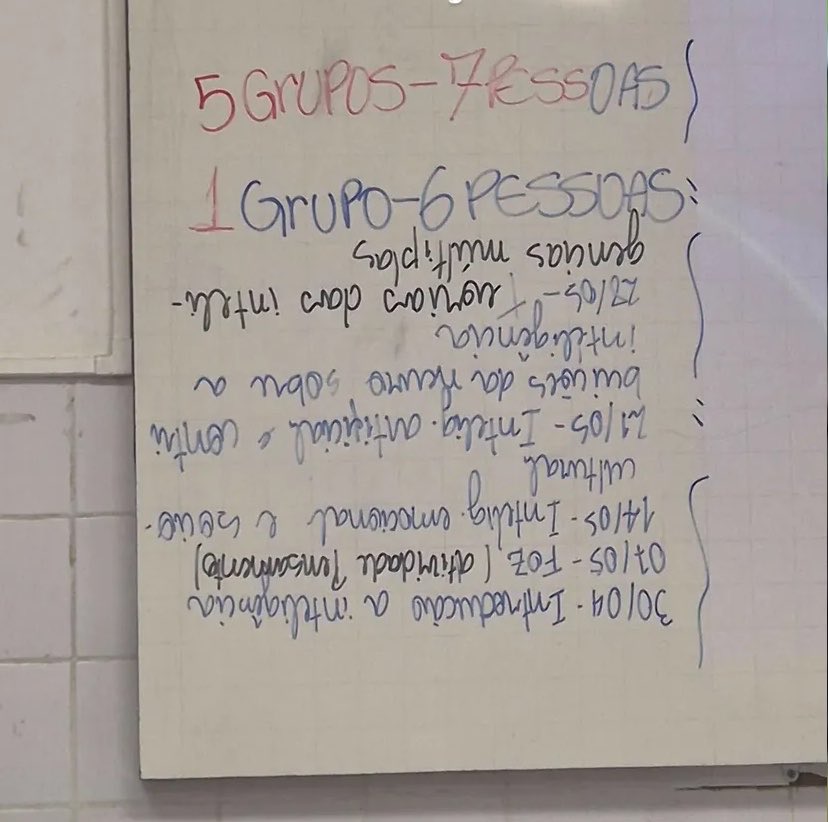 5 GrUPOS - 7 PESSOAS
1 GrUPO - 6 PESSOAS:
30/04 - Introdução a inteligência
07/05 - FOZ (atividade Pensamento)
14/05 - Intelig. emocional e socio-
cultural
21/05 - Intelig. artificial e contri
buições da neuro sobre a
inteligência
28/05 - Teorias das inteli-
gencias múltiplas